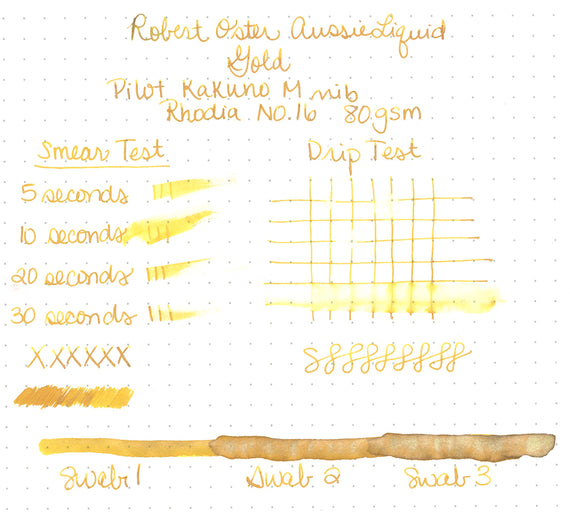 Robert Oster Aussie Liquid
Gold
Pilot Kakuno M nib
Rhodia No. 16 80gsm
Smear Test
Drip Test
5 seconds
10 seconds
20 seconds
30 seconds
X.XXXXX
Swab 1
Swab 2
Swab 3